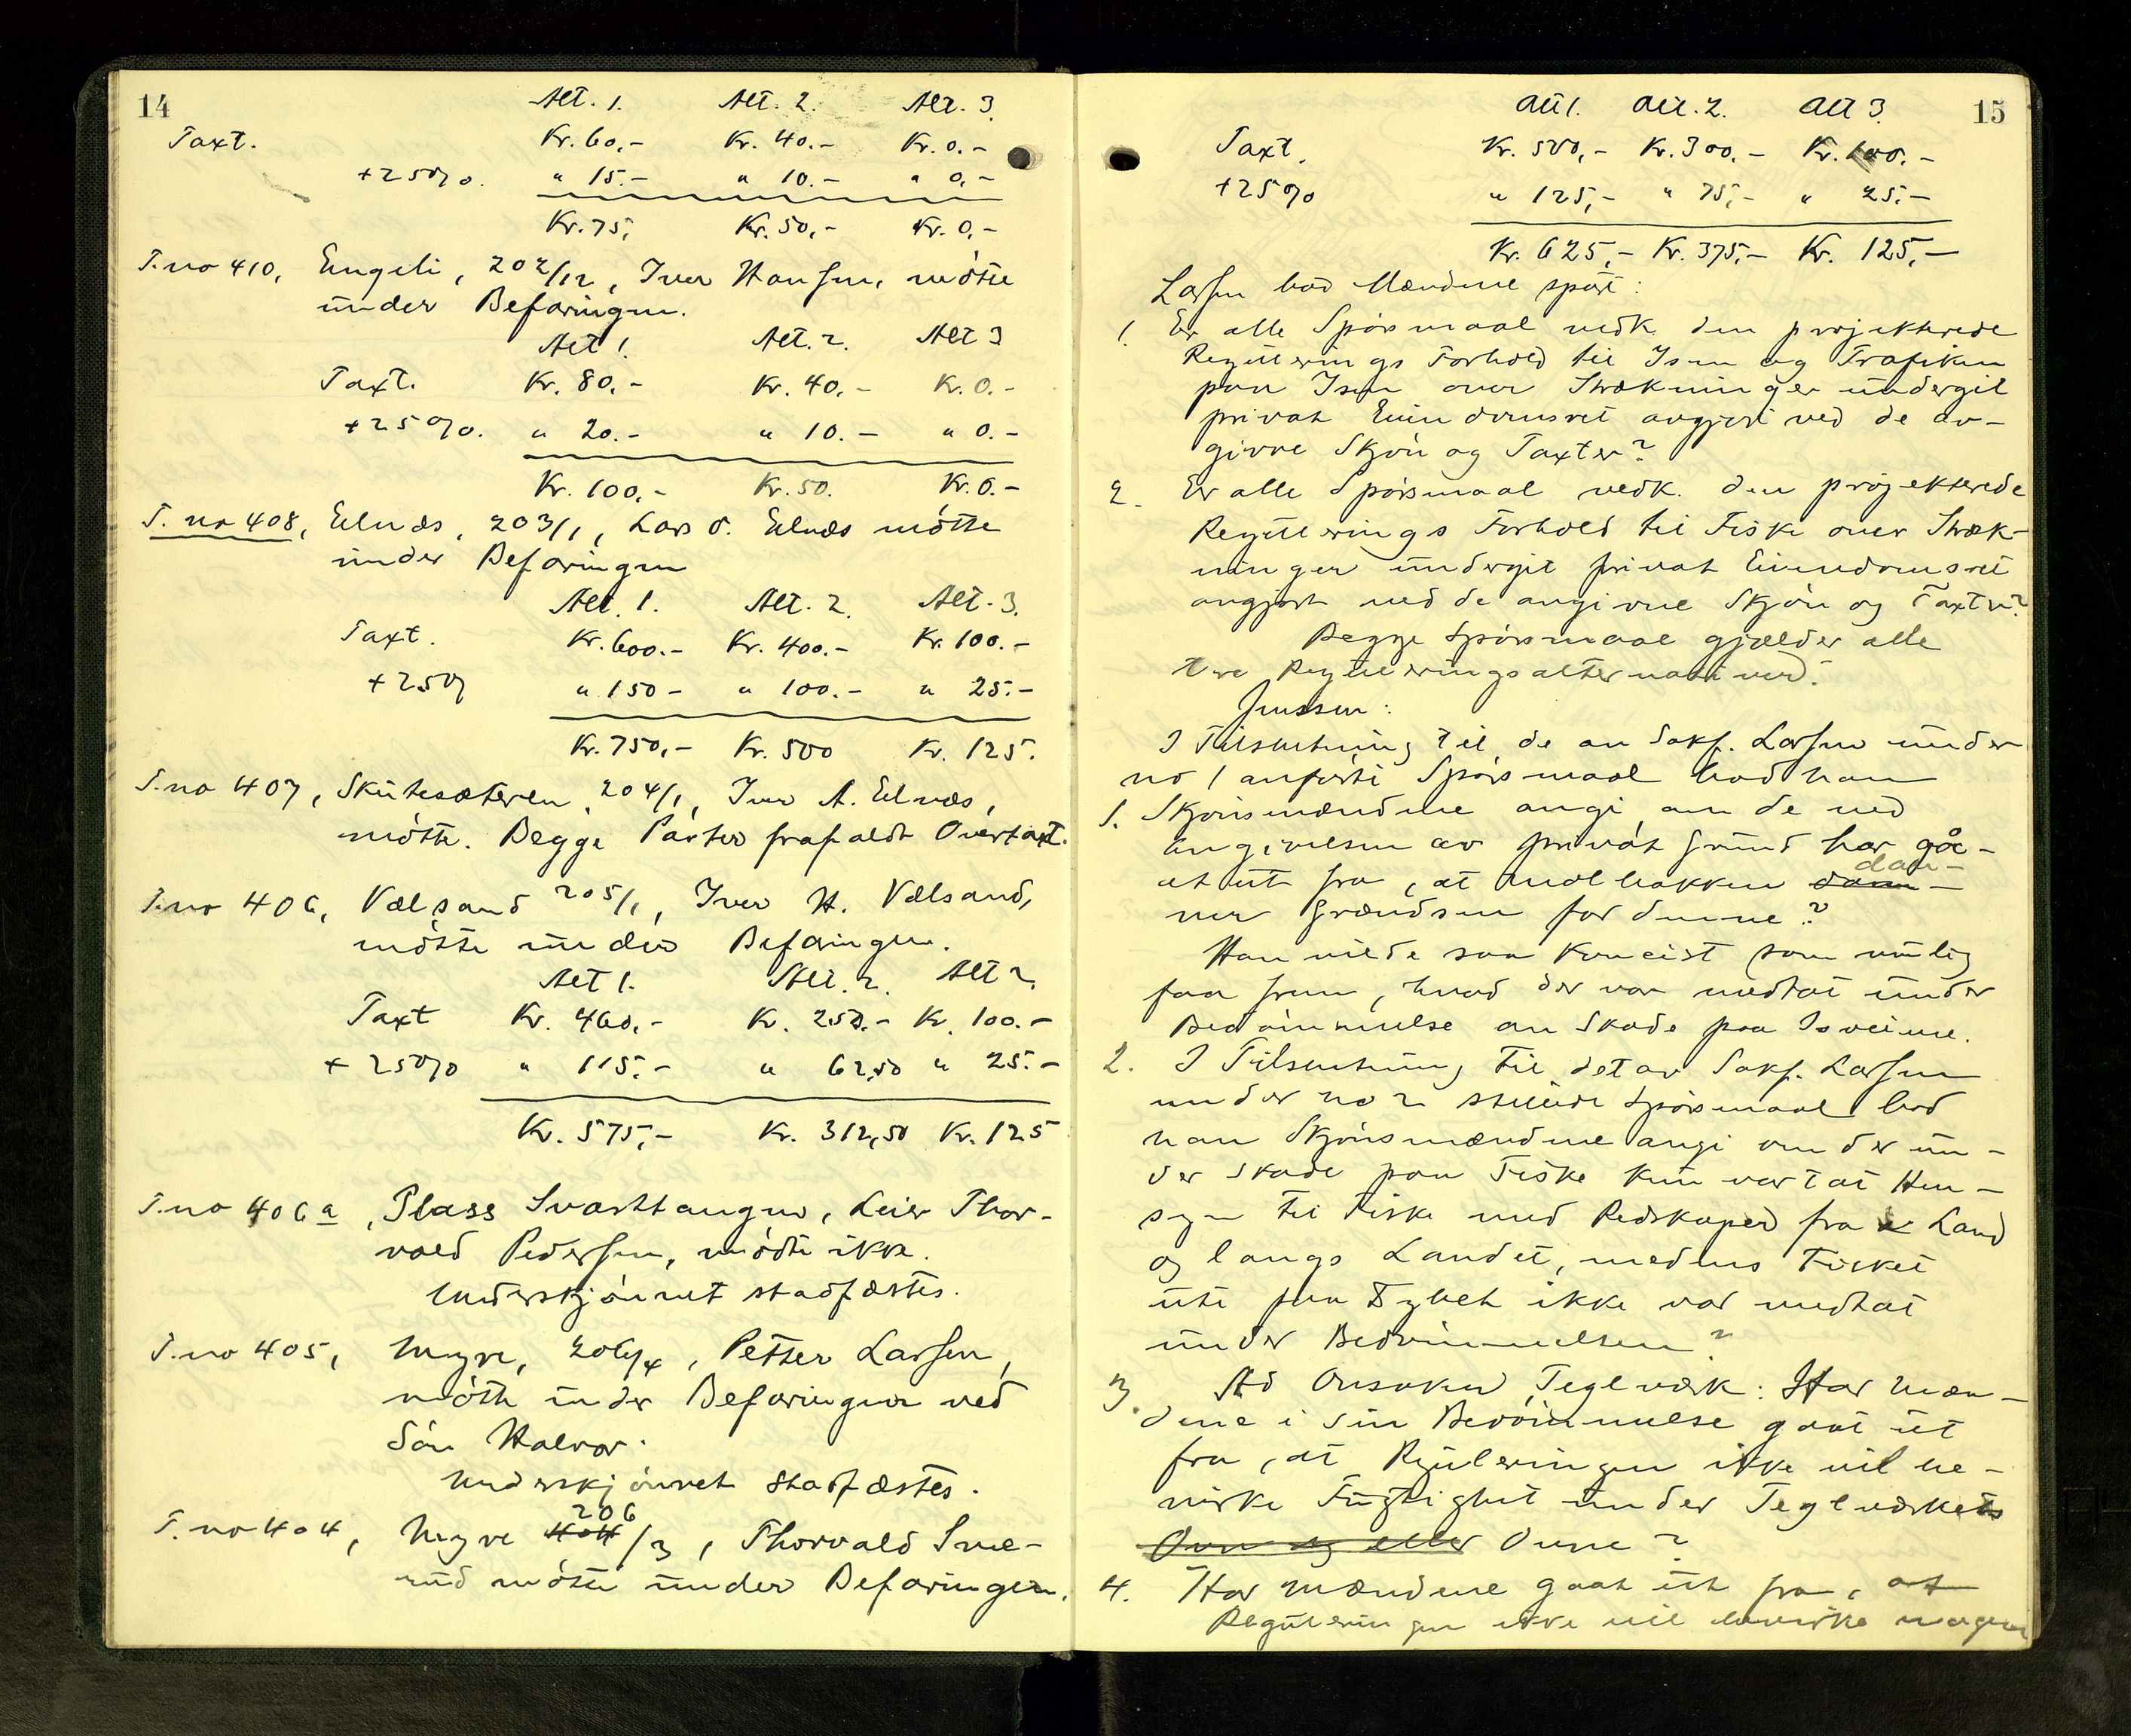 14
Alt. 1. Alt. 2. Alt. 3.
Taxt. Kr. 60,- Kr. 40.- Kr. 0.-
+25%. " 15.- " 10.- " 0,-
Kr. 75, Kr. 50,- Kr. 0,-
T. no 410, Engeli, 202/12, Iver Hansen, mötte
under Befaringen.
Alt 1. Alt. 2. Alt 3
Taxt. Kr. 80.- Kr. 40.- Kr. 0.-
+25%. " 20.- " 10.- " 0.-
Kr. 100.- Kr. 50. Kr. 0.-
T. no 408, Elnæs, 203/1, Lars O. Elnæs mötte
under Befaringen
Alt. 1. Alt. 2. Alt. 3.
Taxt. Kr. 600.- Kr. 400.- Kr. 100.-
+25% " 150- " 100.- " 25.-
Kr. 750,- Kr. 500 Kr. 125.
T. no 407, Skutesæteren, 204/1, Iver A. Elnæs,
mötte. Begge Parter frafaldt Overtaxt.
T. no 406, Vælsand 205/1, Iver H. Vælsand,
mötte under Befaringen.
Alt 1. Alt. 2. Alt 2.
Taxt Kr. 460,- Kr. 250.- Kr. 100.-
+ 25% " 115.- " 62,50 " 25.-
Kr. 575,- Kr. 312,50 Kr. 125
T. no 406 a, Plass Svarttangen, Leier Thor-
vald Pedersen, mödte ikke.
Underskjönnet stadfæstes.
T. no 405, Myre, 206/4, Petter Larsen,
mötte under Befaringen ved
Sön Halvor.
Underskjönnet stadfæstes.
206
T. no 404, Myre 404/3, Thorvald Sme-
rud mötte under Befaringen.
15
Alt 1. Alt. 2. Alt 3.
Taxt. Kr. 500,- Kr. 300.- Kr. 100.-
+25% " 125,- " 75,- " 25.-
Kr. 625,- Kr. 375,- Kr. 125,-
Larsen bad Mændene spurt:
1. Er alle Spörsmaal vedk. den projekterede
Regulerings Forhold til Isen og Trafiken
paa Isen over Strækninger undergit
privat Eiendomsret avgjort ved de av-
givne Skjön og Taxter?
2. Er alle Spörsmaal vedk. den projekterede
Regulerings Forhold til Fiske over Stræk-
ninger undergit privat Eiendomsret
avgjort ved de avgivne Skjön og Taxter?
Begge Spörsmaal gjælder alle
tre Reguleringsalternativer.
Jenssen:
I Tilslutning til de av Sakf. Larsen under
no 1 anförte Spörsmaal bad han
1. Skjönsmændene angi om de ved
Angivelsen av privat Grund har gaa-
at ut fra, at Marbakken dann- dan-
ner Grændsen for denne?
Han vilde saa koncist som mulig
faa frem, hvad der var medtat under
Bedömmelse av Skade paa Isveiene.
2. I Tilslutning til det av Sakf. Larsen
under no 2 stillede Spörsmaal bad
han Skjönsmændene angi om der un-
der Skade paa Fiske kun var tat Hen-
syn til Fiske med Redskaper fra Land
og langs Landet, medens Fisket
ute paa Dybet ikke var medtat
under Bedömmelsen?
3. Ad Onsaker Teglværk: Har Mæn-
dene i sin Bedömmelse gaat ut
fra, at Reguleringen ikke vil be-
virke Fugtighet under Teglværkets
Ovn og eller Ovne?
4. Har Mændene gaat ut fra, at
Reguleringen ikke vil bevirke nogen